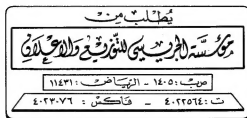 يُطْلَبُ مِن
مؤسسة الجريسي للتوزيع والإعلان
ص ب : ١٤٠٥ - الرياض : ١١٤٣١
ت : ٤٠٢٢٥٦٤ - فاكس : ٤٠٢٣٠٧٦